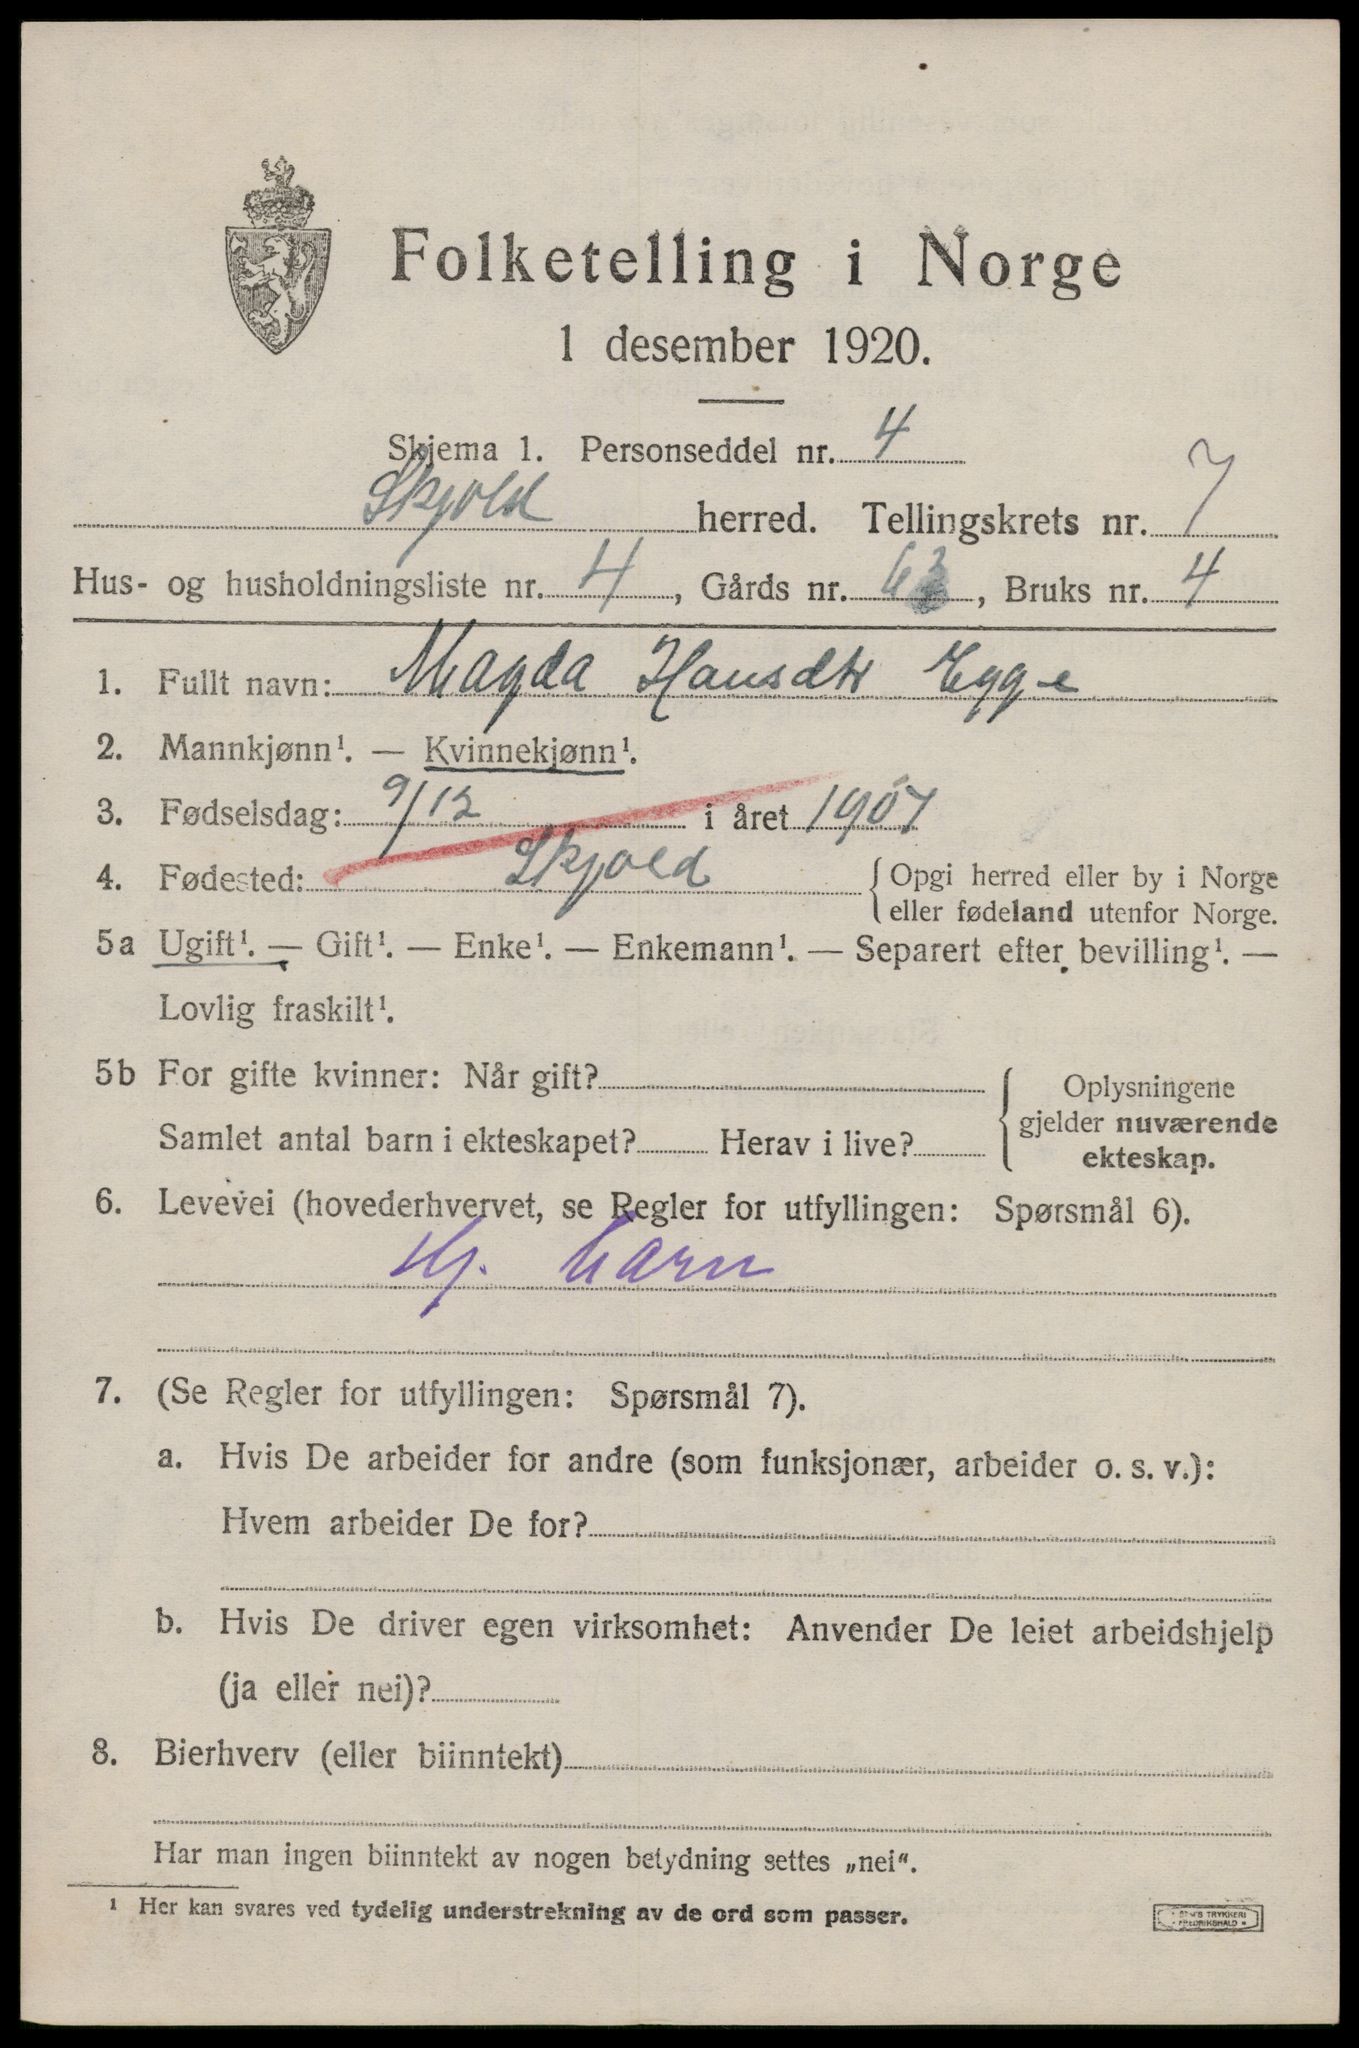 Folketelling i Norge
1 desember 1920.
Skjema 1. Personseddel nr. 4
Skjold herred. Tellingskrets nr. 7
Hus- og husholdningsliste nr. 4, Gårds nr. 63, Bruks nr. 4
1. Fullt navn: Magda Hansdtr Egge
2. Mannkjønn¹. — Kvinnekjønn¹.
3. Fødselsdag: 9/12 i året 1907
4. Fødested: Skjold { Opgi herred eller by i Norge
eller fødeland utenfor Norge.
5a Ugift¹. — Gift¹. — Enke¹. — Enkemann¹. — Separert efter bevilling¹. —
Lovlig fraskilt¹.
5b For gifte kvinner: Når gift? { Oplysningene
gjelder nuværende
Samlet antal barn i ekteskapet? Herav i live?
ekteskap.
6. Levevei (hovederhvervet, se Regler for utfyllingen: Spørsmål 6).
Hj. barn
7. (Se Regler for utfyllingen: Spørsmål 7).
a. Hvis De arbeider for andre (som funksjonær, arbeider o. s. v.):
Hvem arbeider De for?
b. Hvis De driver egen virksomhet: Anvender De leiet arbeidshjelp
(ja eller nei)?
8. Bierhverv (eller biinntekt)
Har man ingen biinntekt av nogen betydning settes „nei“.
¹ Her kan svares ved tydelig understrekning av de ord som passer.
TRYKKERI
FREDRIKSHALD